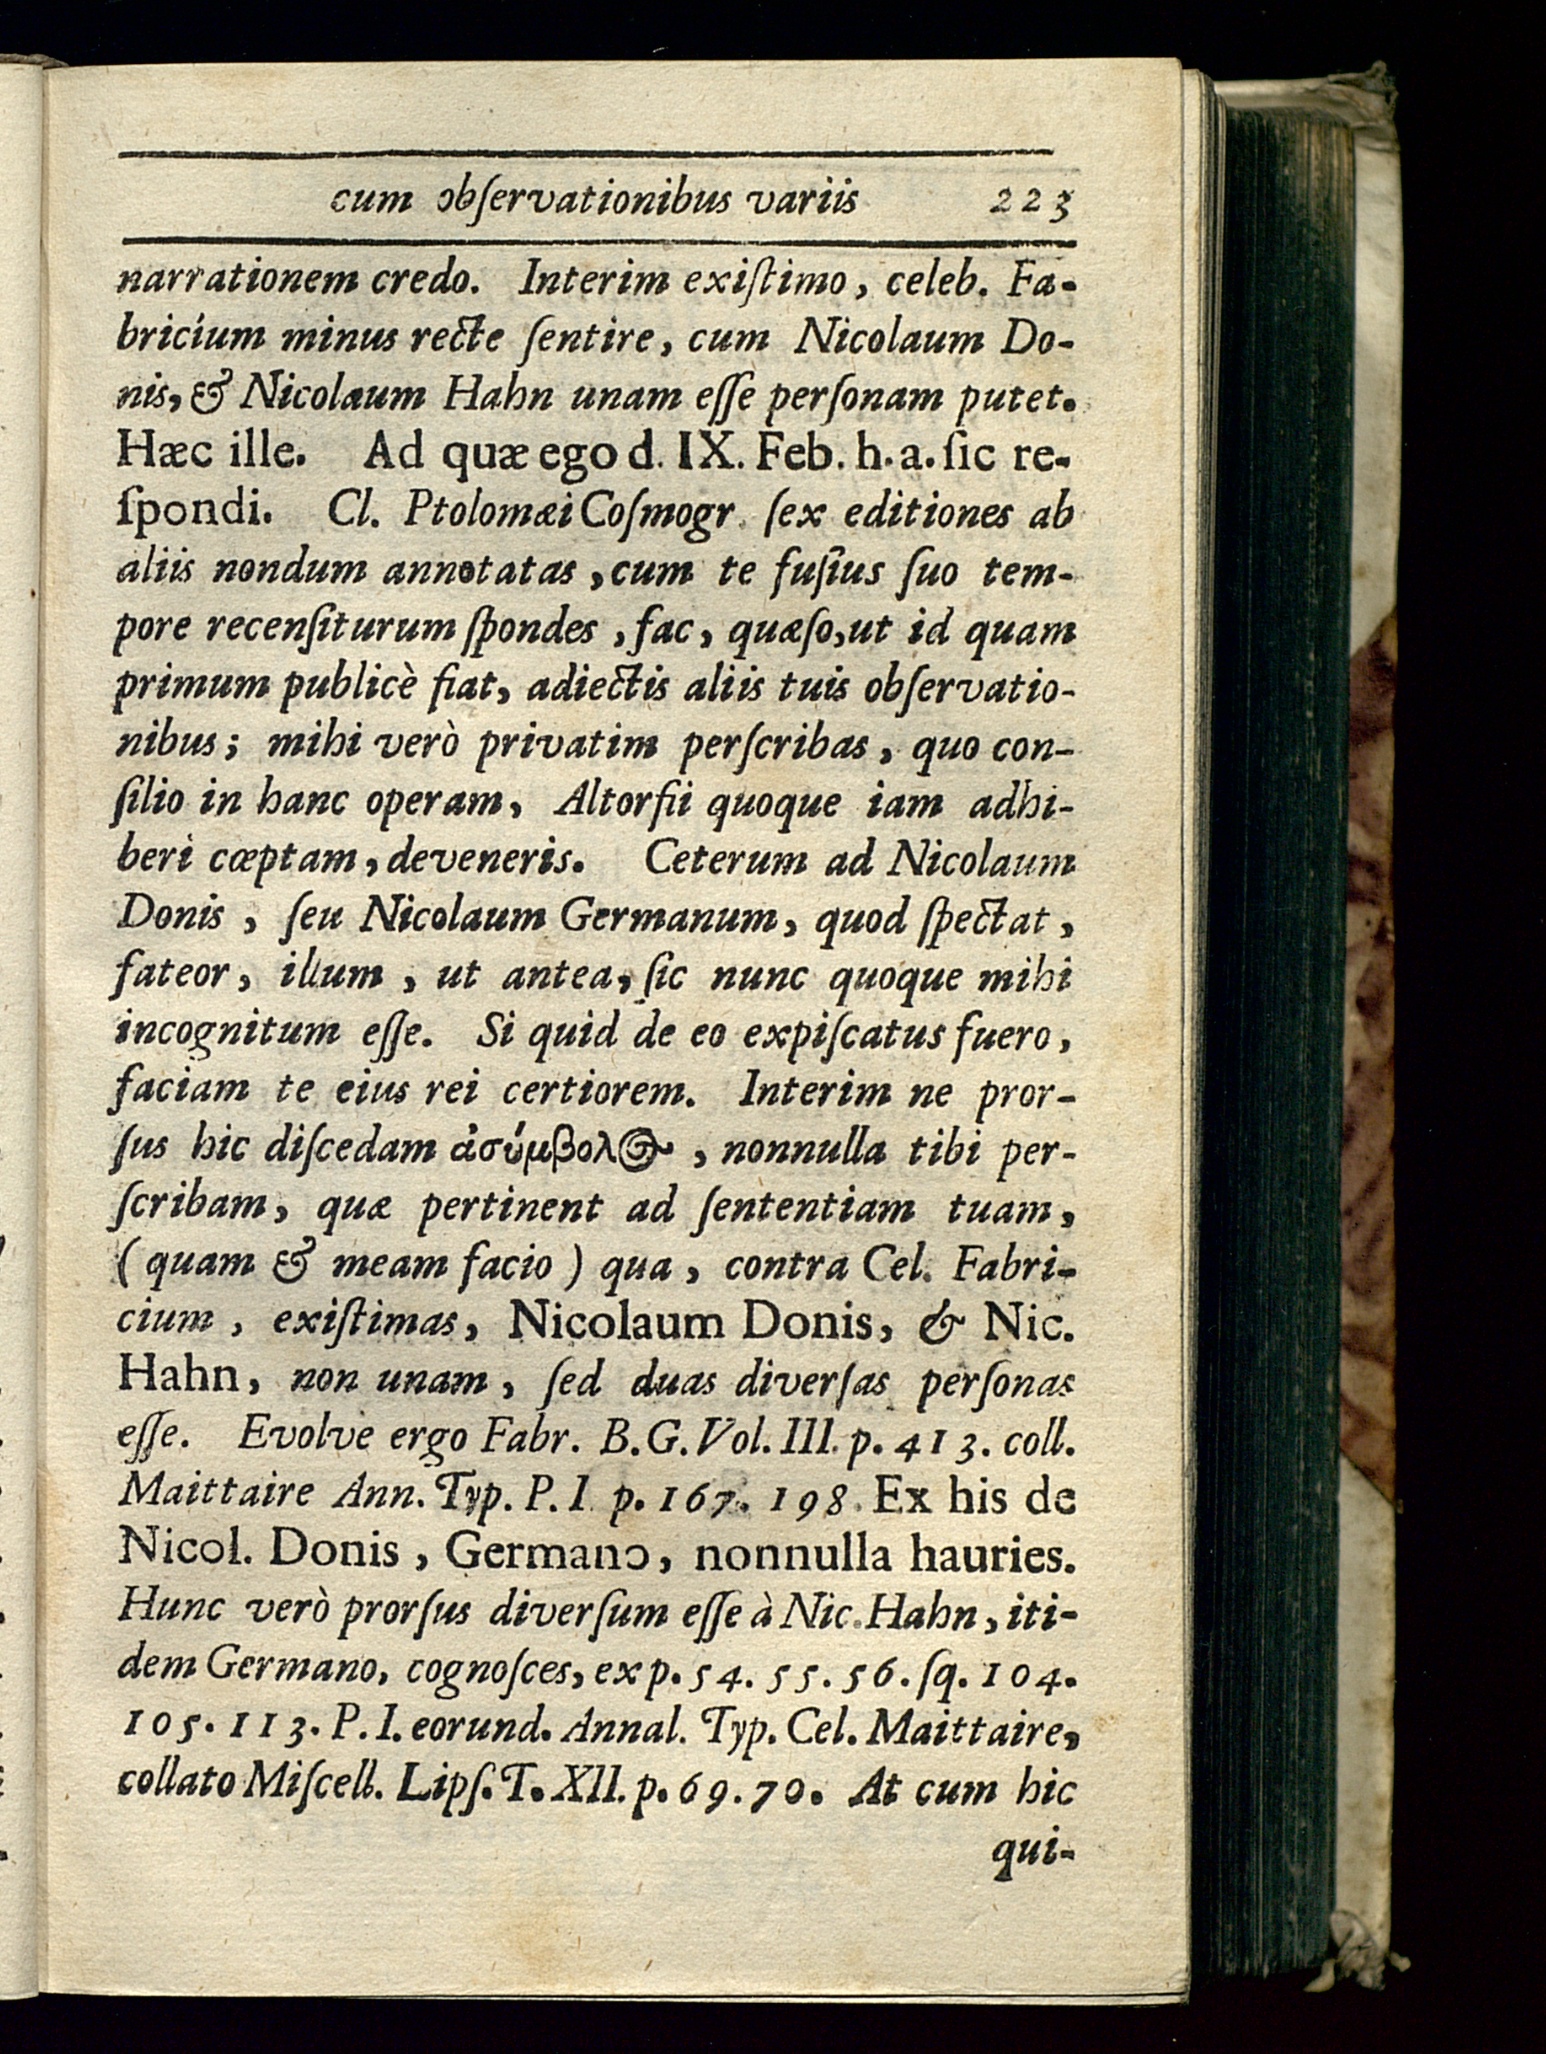 cum obſervationibus variis 223
narrationem credo. Interim exiſtimo, celeb. Fa-
bricium minus recte ſentire, cum Nicolaum Do-
nis, & Nicolaum Hahn unam eſſe perſonam putet.
Hæc ille. Ad quæ ego d. IX. Feb. h. a. ſic re-
ſpondi. Cl. Ptolomæi Coſmogr. ſex editiones ab
aliis nondum annotatas, cum te fuſius ſuo tem-
pore recenſiturum ſpondes, fac, quæſo, ut id quam
primum publicè fiat, adiectis aliis tuis obſervatio-
nibus; mihi verò privatim perſcribas, quo con-
ſilio in hanc operam, Altorfii quoque iam adhi-
beri cœptam, deveneris. Ceterum ad Nicolaum
Donis, ſeu Nicolaum Germanum, quod ſpectat,
fateor, illum, ut antea, ſic nunc quoque mihi
incognitum eſſe. Si quid de eo expiſcatus fuero,
faciam te eius rei certiorem. Interim ne pror-
ſus hic diſcedam ἀσύμβολος, nonnulla tibi per-
ſcribam, quæ pertinent ad ſententiam tuam,
(quam & meam facio) qua, contra Cel. Fabri-
cium, exiſtimas, Nicolaum Donis, & Nic.
Hahn, non unam, ſed duas diverſas perſonas
eſſe. Evolve ergo Fabr. B. G. Vol. III. p. 413. coll.
Maittaire Ann. Typ. P. I. p. 167. 198. Ex his de
Nicol. Donis, Germano, nonnulla hauries.
Hunc verò prorſus diverſum eſſe à Nic. Hahn, iti-
dem Germano, cognoſces, ex p. 54. 55. 56. ſq. 104.
105. 113. P. I. eorund. Annal. Typ. Cel. Maittaire,
collato Miſcell. Lipſ. T. XII. p. 69. 70. At cum hic
qui-